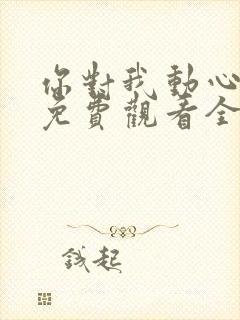 你對我動心
免費觀看全
錢起